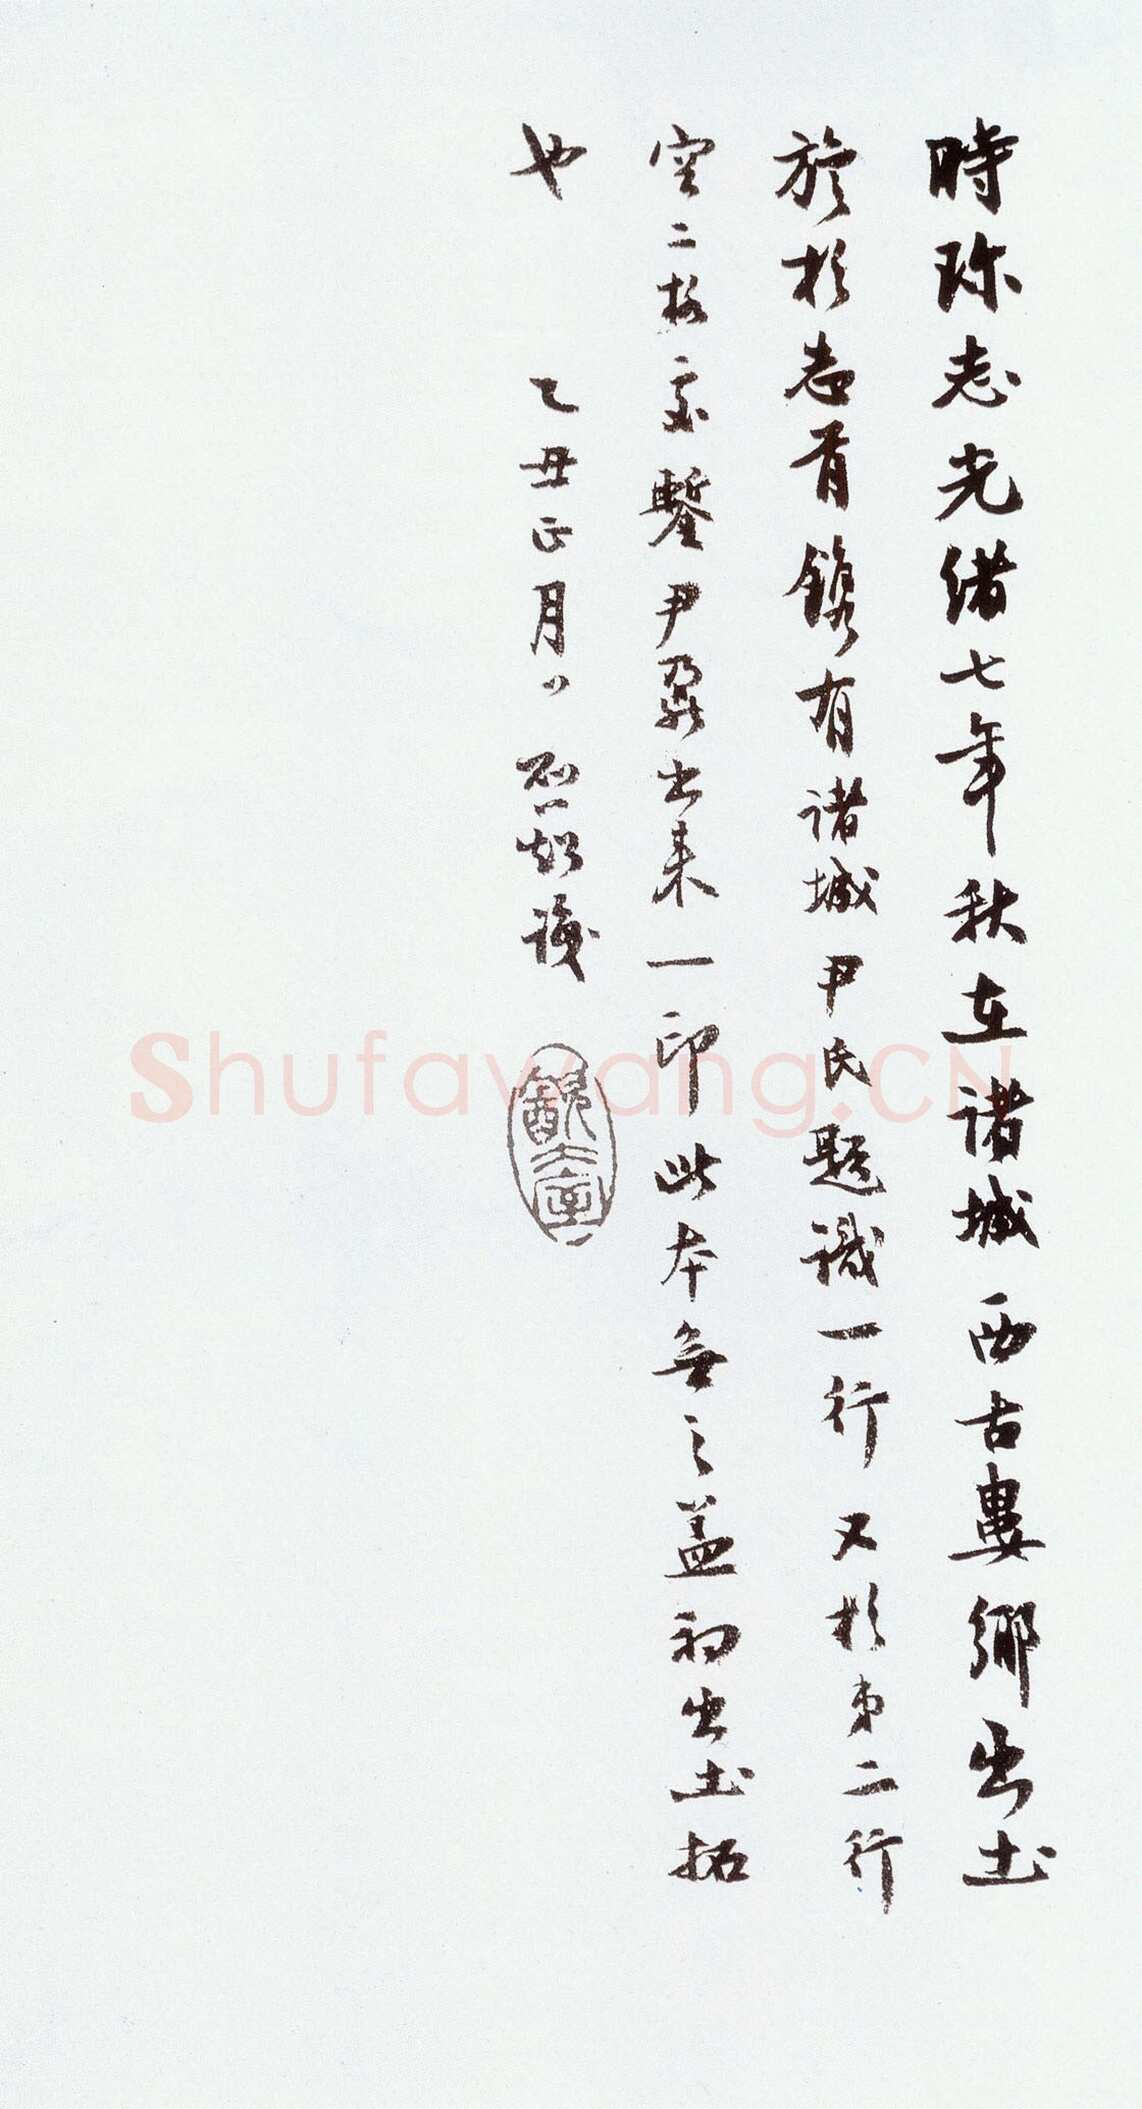 時珎志光緒七年秋在諸城西古婁鄉出土
旋於志首鐫有諸城尹氏題識一行又於第二行
空二格處鑿尹鼐出來一印此本無之蓋初出土拓
也 乙丑正月 識
Shufawang.CN